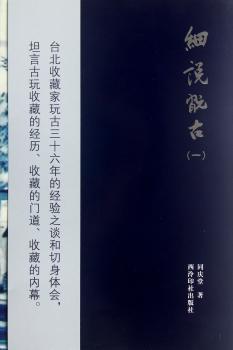 細说翫古
（一）
同庆堂 著
西泠印社出版社
台北收藏家玩古三十六年的经验之谈和切身体会，
坦言古玩收藏的经历、收藏的门道、收藏的内幕。